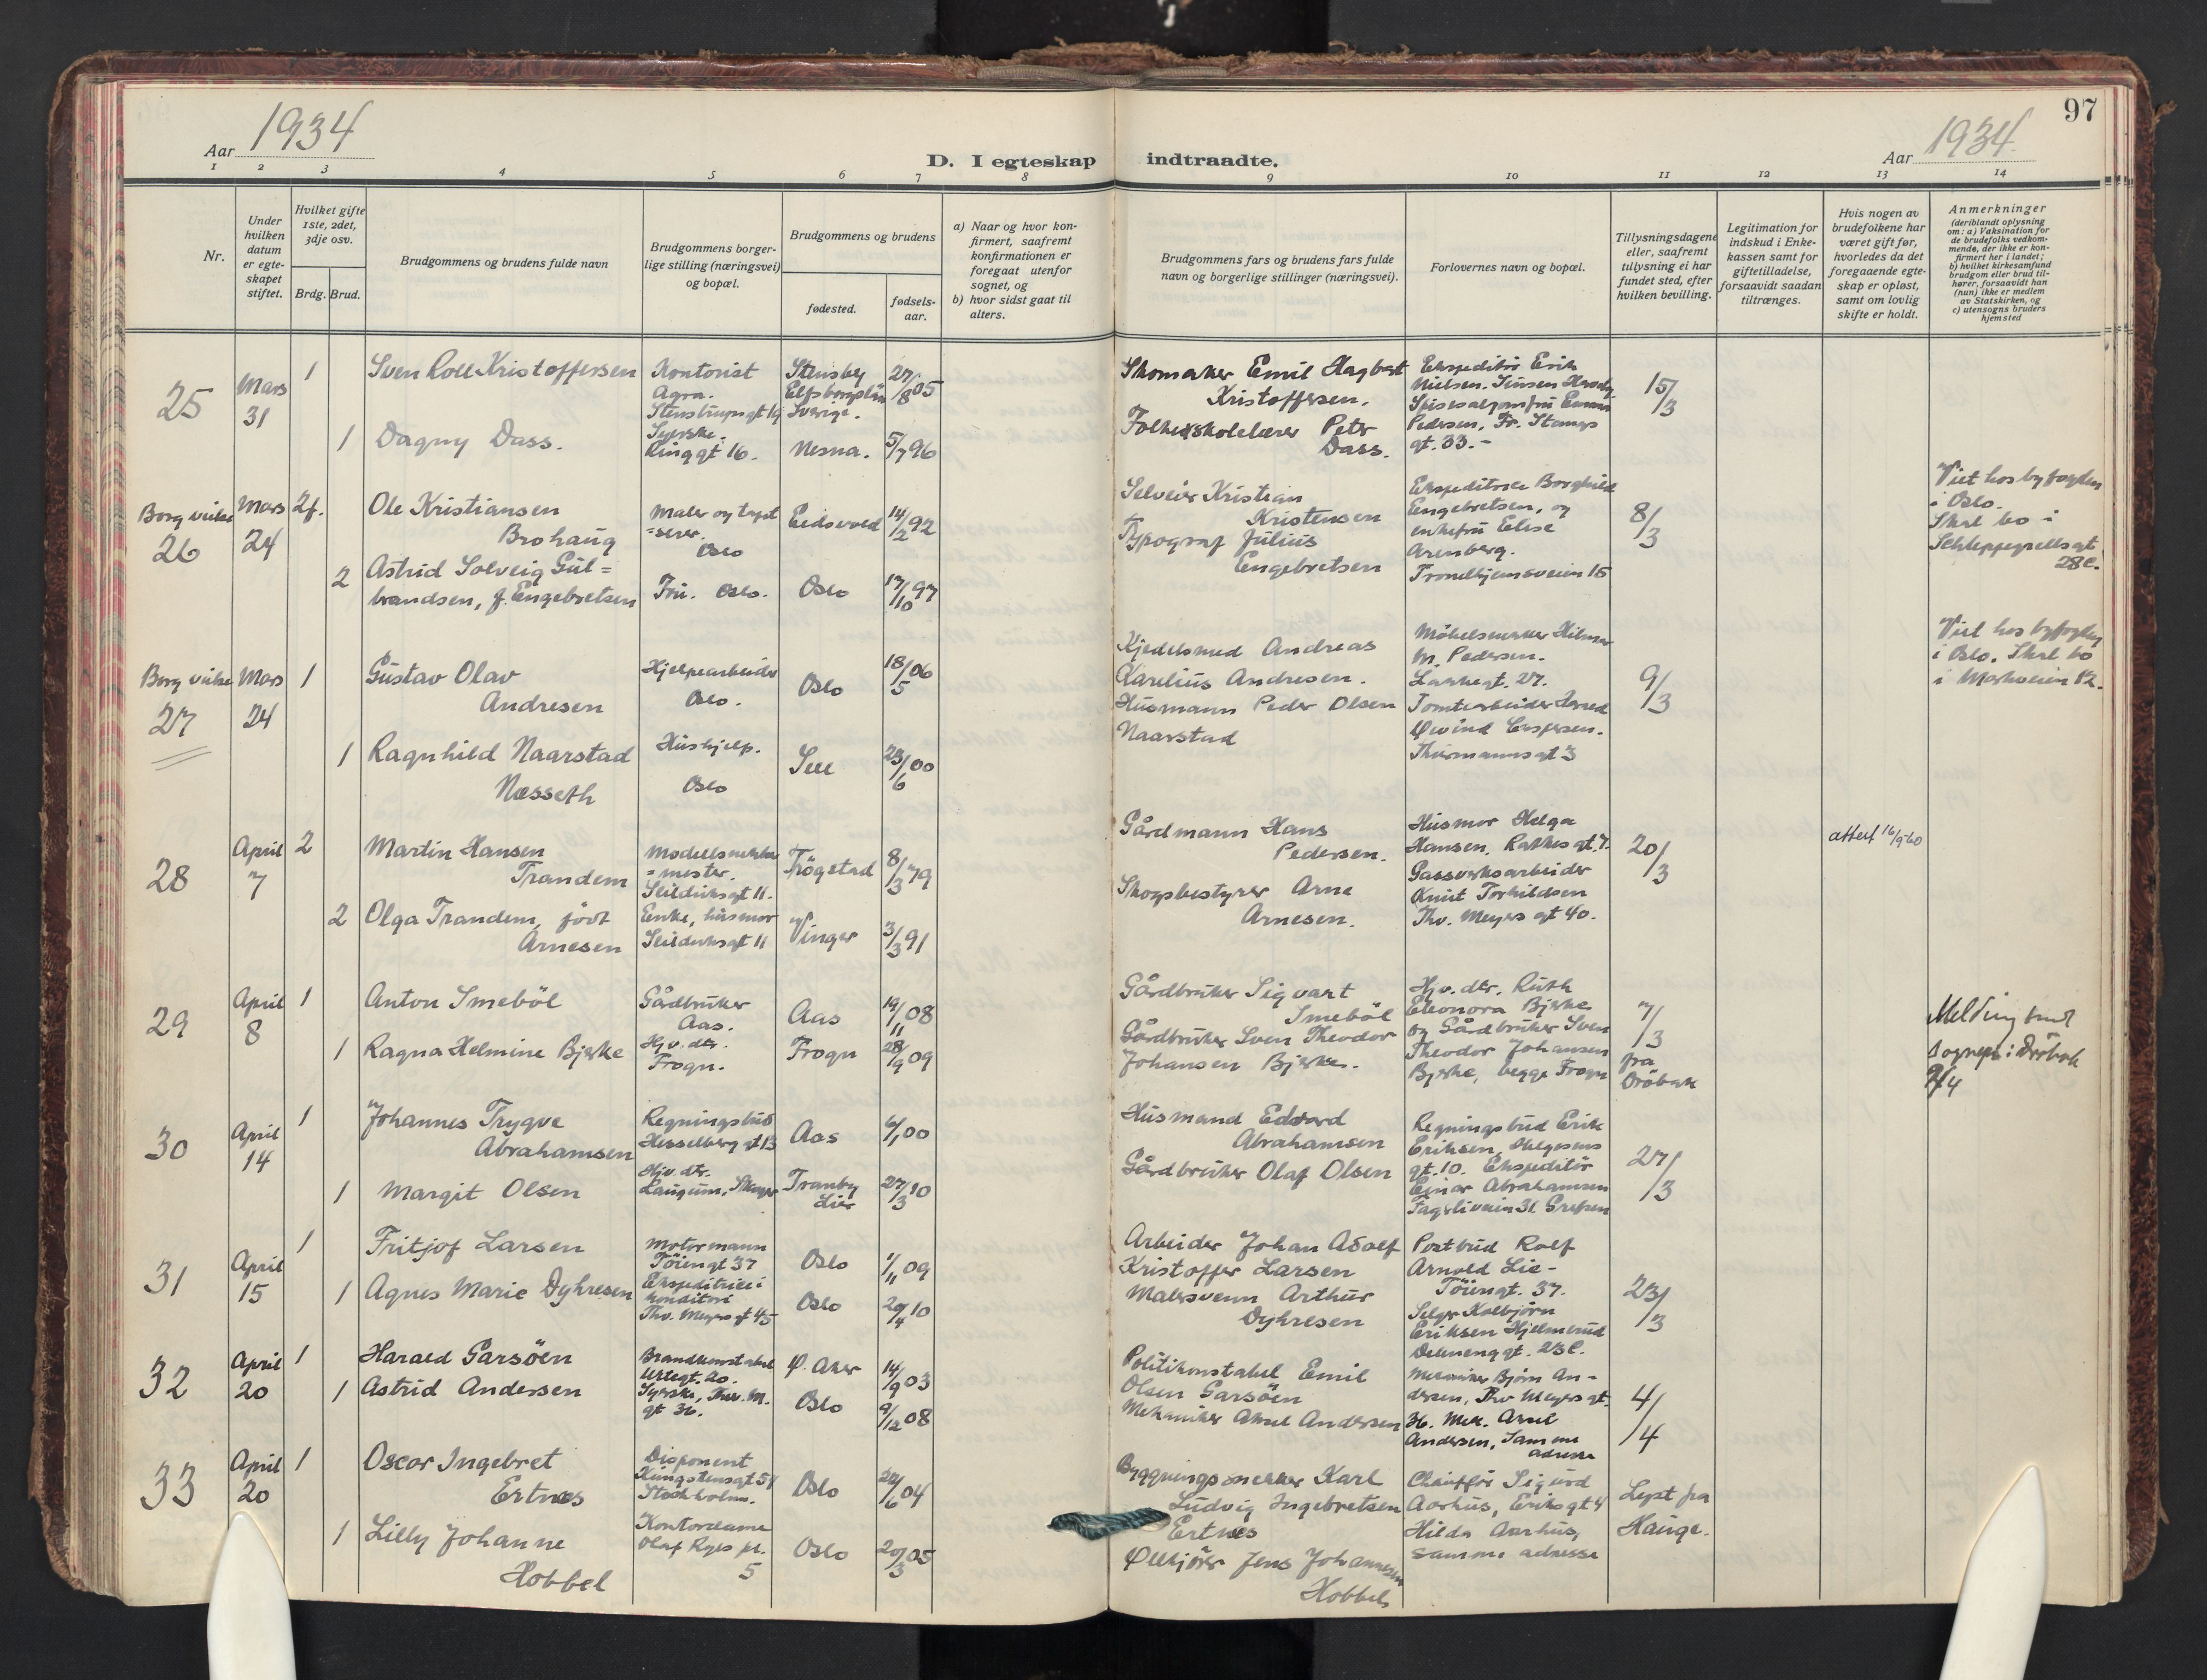 97
Aar 1934
D. I egteskap indtraadte.
Aar 1934.
1 2 3 4 5 6 7 8 9 10 11 12 13 14
Nr.
Under hvilken datum er egteskapet stiftet.
Hvilket gifte 1ste, 2det, 3dje osv.
Brdg. Brud.
Brudgommens og brudens fulde navn
Brudgommens borgerlige stilling (næringsvei) og bopæl.
Brudgommens og brudens
fødested.
fødselsaar.
a) Naar og hvor konfirmert, saafremt konfirmationen er foregaat utenfor sognet, og
b) hvor sidst gaat til alters.
Brudgommens fars og brudens fars fulde navn og borgerlige stillinger (næringsvei).
Forlovernes navn og bopæl.
Tillysningsdagene eller, saafremt tillysning ei har fundet sted, efter hvilken bevilling.
Legitimation for indskud i Enkekassen samt for giftetilladelse, forsaavidt saadan tiltrænges.
Hvis nogen av brudefolkene har været gift før, hvorledes da det foregaaende egteskap er opløst, samt om lovlig skifte er holdt.
Anmerkninger
(deriblandt oplysning om: a) Vaksination for de brudefolks vedkommende, der ikke er konfirmert her i landet; b) hvilket kirkesamfund brudgom eller brud tilhører, forsaavidt han (hun) ikke er medlem av Statskirken, og c) utensogns bruders hjemsted
25
Mars
31
1
Sven Roll Kristoffersen
Kontorist
Agra.
Stenstrupsgt 19
Stensby
Elfsborgslän
Sverige.
27/8 05
Skomaker Emil Hagbart
Kristoffersen.
Ekspeditør Erik
Nielsen. Sinsen Haveby
Pedersen, Fr. Stangs
gt. 33.-
15/3
1
Dagny Dass.
Syerske.
Ringgt 16.
Nesna.
5/7 96
Folkeskolelærer Petr
Dass.
Borg vielse
26
Mars
24
2f.
Ole Kristiansen
Brohaug
Maler og tapet
=serer.
Oslo
Eidsvold
14/2 92
Selveier Kristian
Kristensen
Ekspeditrice Borghild
Engebretsen, og
enkefru Elise
Arenberg.
Trondhjemsveien 15
8/3
Viet hos byfogden
i Oslo.
Skal bo i
Schleppegrellsgt
28c.
2
Astrid Solveig Gul=
brandsen, f. Engebretsen
Fru. Oslo.
Oslo
17/10 97
Typograf Julius
Engebretsen
Borg vielse
27
Mars
24
1
Gustav Olav
Andresen
Hjelpearbeider
Oslo.
Oslo
18/5 06
Kjedelsmed Andreas
Karelius Andresen.
Møbelsnekker Hilmar
M. Pedersen.
Lakkegt. 27.
9/3
Viet hos byfogden
i Oslo. Skal bo
i Markveien 12.
1
Ragnhild Naarstad
Næsseth
Hushjelp.
Oslo
23/6 00
Husmann Peder Olsen
Naarstad
Tomtearbeider Harred
Øivind Caspersen.
Thurmannsgt 3
28
April
7
2
Martin Hansen
Trandem
Modellsnekker
=mester.
Seilduksgt 11.
Trøgstad
8/3 79
Gårdmann Hans
Pedersen.
Husmor Helga
Hansen, Rathkes gt. 7.
Gassverksarbeider
Knut Torkildsen
Thv. Meyers gt 40.
20/3
attest 16/9-60
2
Olga Trandem, født
Arnesen
Enke, husmor
Seilduksgt 11
Vinger
3/3 91
Skogsbestyrer Arne
Arnesen.
29
April
8
1
Anton Smebøl
Gårdbruker
Aas.
Aas
19/11 08
Gårdbruker Sigvart
Smebøl
Hjv. dtr. Ruth
Eleonora Bjerke
og Gårdbruker Sven
Theodor Johansen
Bjerke, begge Frogn
7/3
fra
Drøbak
Melding sendt
sognepr. i Drøbak
9/4
1
Ragna Helmine Bjerke
Hjv. dtr.
Frogn.
Frogn
28/9 09
Gårdbruker Sven Theodor
Johansen Bjerke.
30
April
14
1
Johannes Trygve
Abrahamsen
Regningsbud
Hesselberg gt 13
Aas
6/1 00
Husmand Edvard
Abrahamsen
Regningsbud Erik
Eriksen, Helgesens
gt. 10. Ekspeditør
Einar Abrahamsen
Fagerliveien 31 Grefsen
27/3
1
Margit Olsen
Hjv. dtr.
Tranby
Lier
27/3 10
Gårdbruker Olaf Olsen
31
April
15
1
Fritjof Larsen
Motormann
Tøiengt 37
Oslo
1/11 09
Arbeider Johan Adolf
Kristoffer Larsen
Postbud Rolf
Arnold Lie-
Tøiengt. 37.
Selger Kolbjørn
Eriksen Hjelmerud
Dælenenggt. 23 C.
23/3
1
Agnes Marie Dyhresen
Ekspeditrice i
konditori
Thv. Meyers gt 45
Oslo
20/4 10
Malersvenn Arthur
Dyhresen
32
April
20
1
Harald Garsøen
Brandkonstabel
Urtegt. 20.
Ø. Aker
14/9 03
Politikonstabel Emil
Olsen Garsøen
Mekaniker Bjørn An-
dersen, Thv Meyers gt.
36. Mek. Aksel
Andersen, samme
adresse
4/4
1
Astrid Andersen
Syerske, Thv. M.
gt 36.
Oslo
9/12 08
Mekaniker Aksel Andersen
33
April
20
1
Oscar Ingebret
Ertnæs
Disponent
Kungstensgt 51
Stockholm.
Oslo
22/6 04
Bygningssnekker Karl
Ludvig Ingebretsen
Ertnes
Chauffør Sigurd
Aarhus, Eriksgt 4
Hilda Aarhus,
samme adresse
Lyst fra
Hauge.
1
Lilly Johanne
Hobbel
Kontordame
Olaf Ryes pl.
5
Oslo
20/3 05
Ølkjører Jens Johannesen
Hobbel